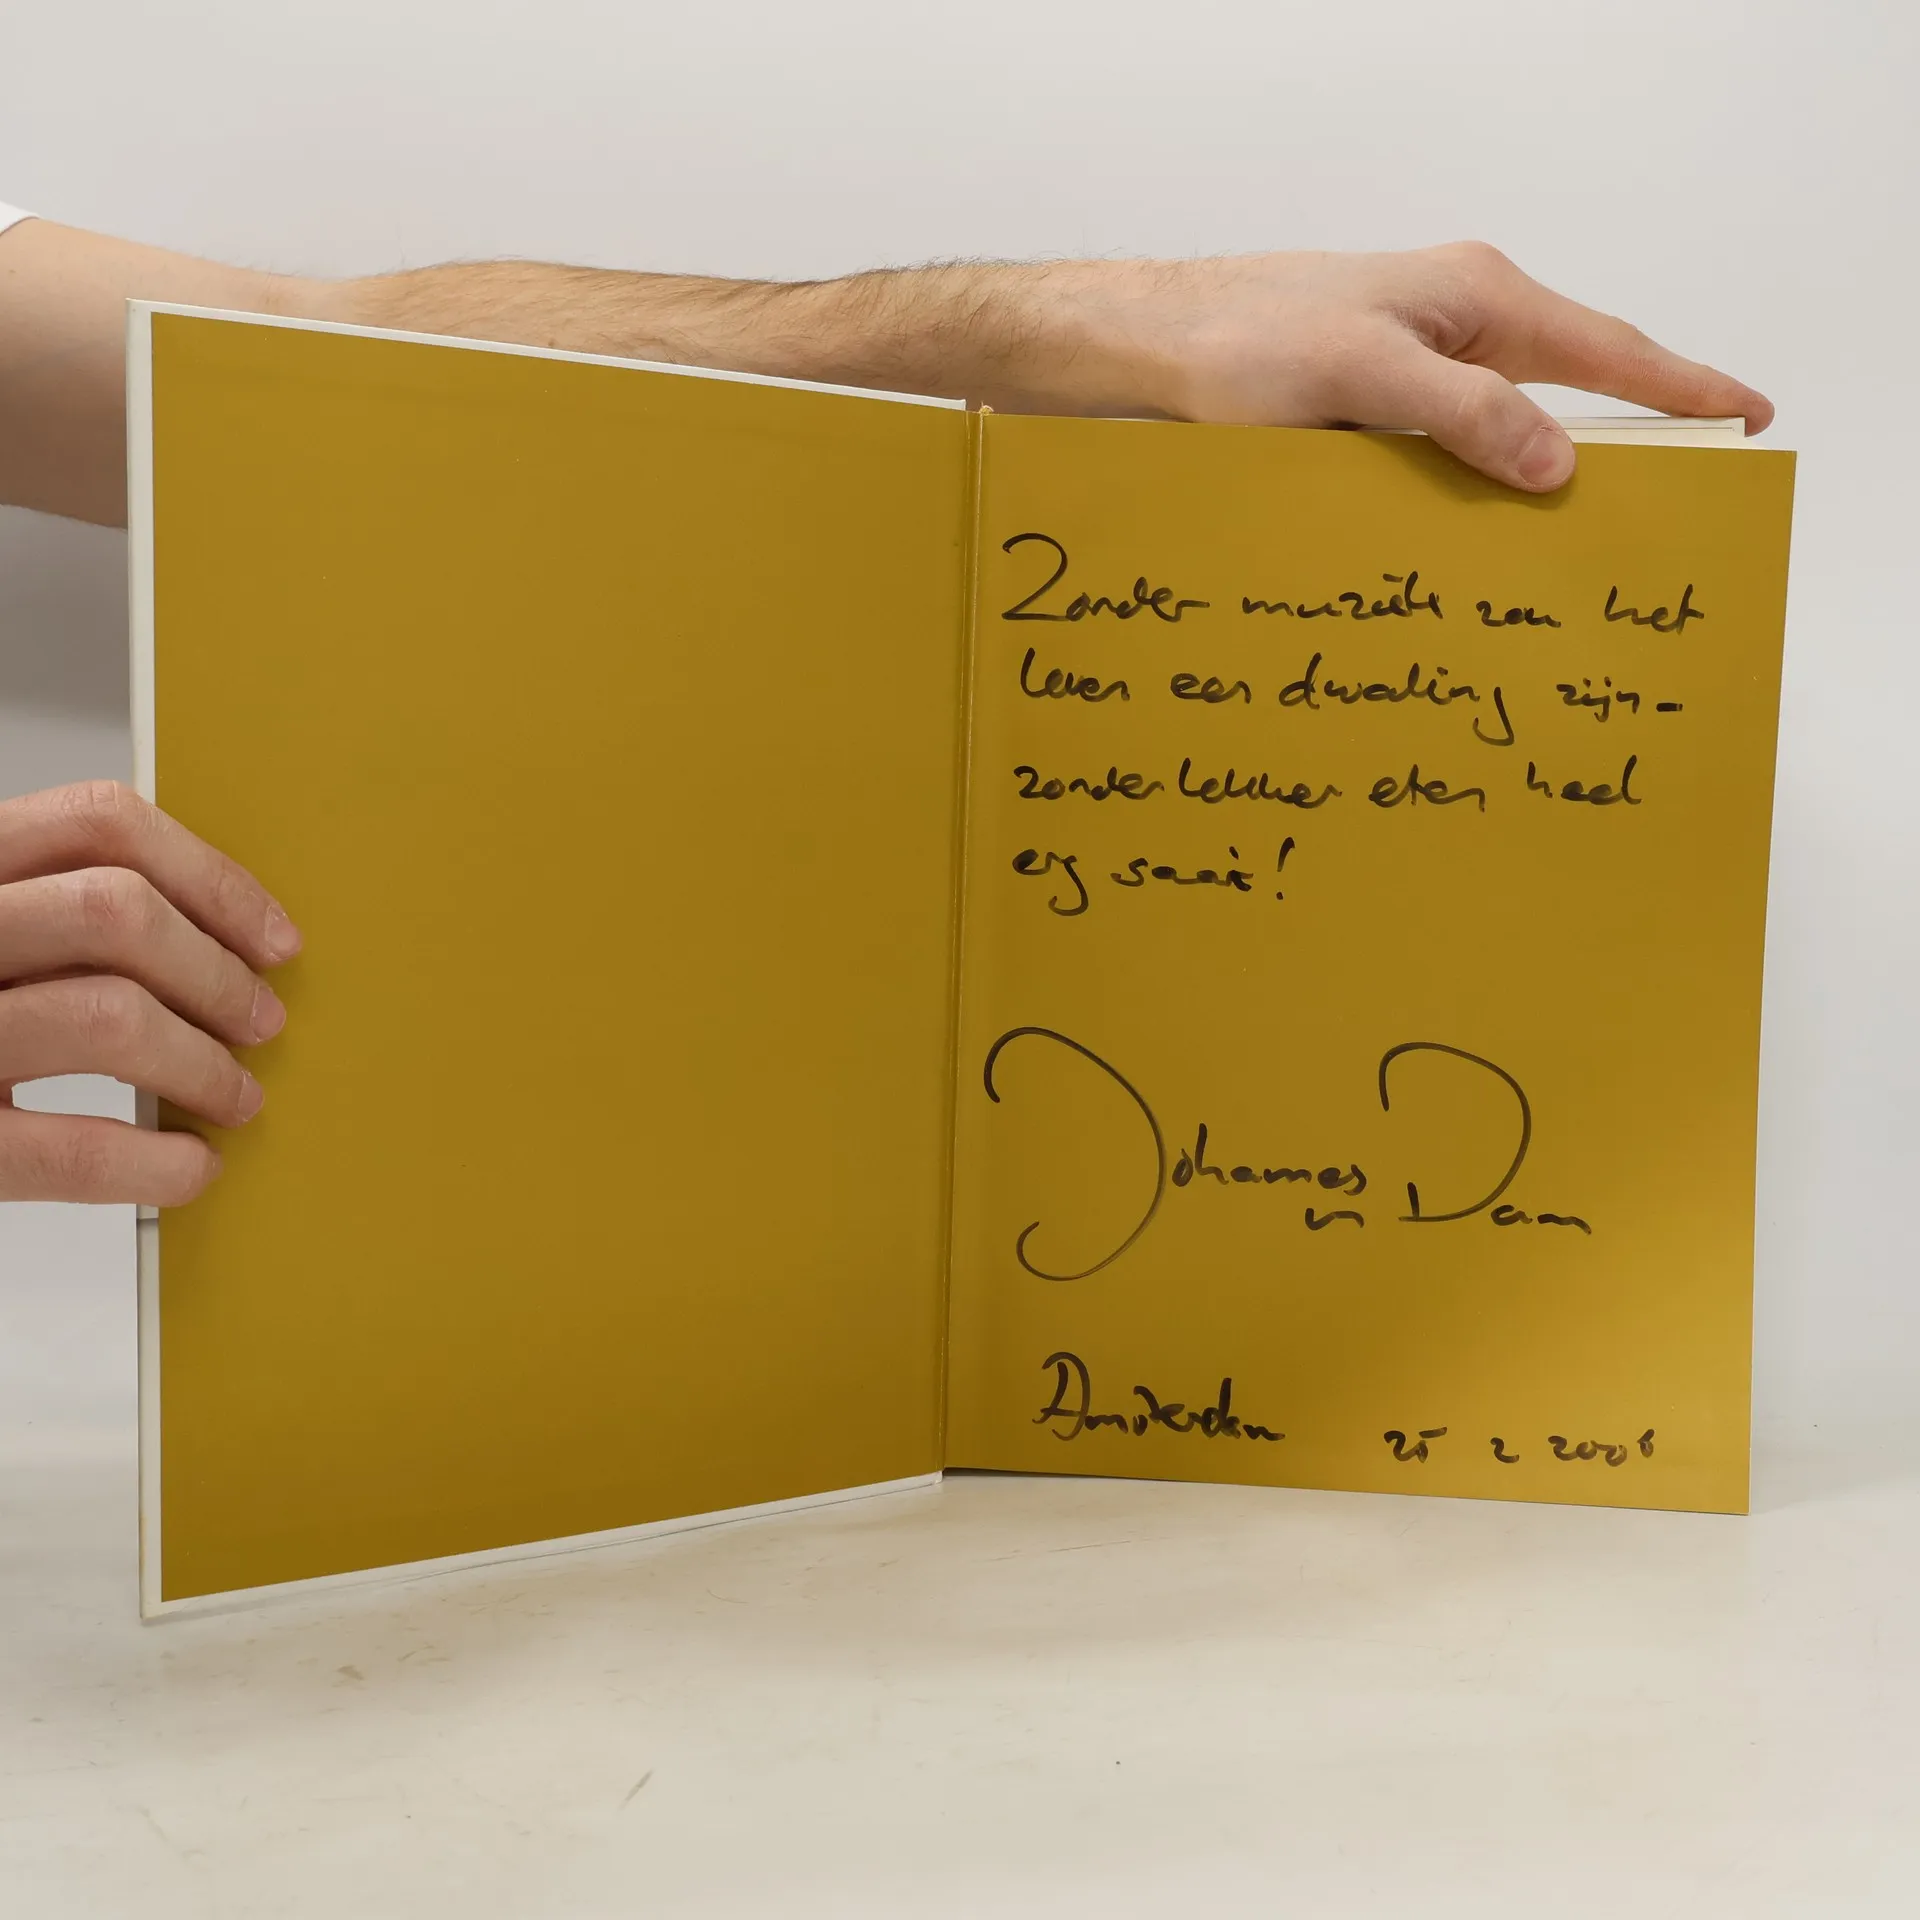 Zonder muziek zou het
leven een dwaling zijn -
zonder lekker eten heel
erg saai!
Johannes
v Dam
Amsterdam 25 2 2006